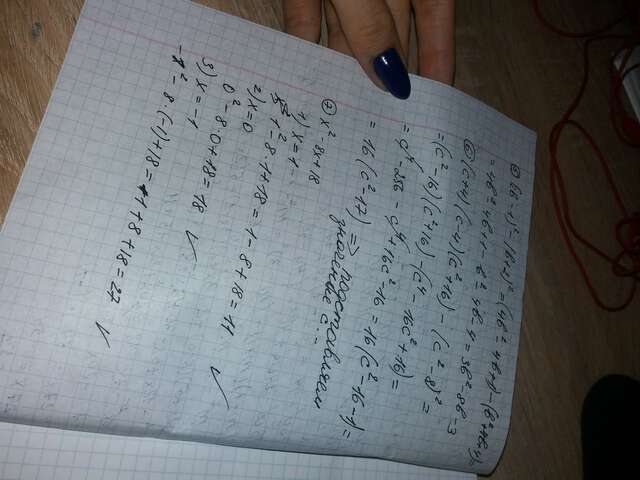 = 4b² - 4b + 1 - b² - 4b - 4 = 3b² - 8b - 3
⑥ (c+4)(c-4)(c²+16) - (c²-8)² =
= (c²-16)(c²+16) - (c⁴ - 16c² + 16) =
= c⁴ - 256 - c⁴ + 16c² - 16 = 16(c² - 16 - 1) =
= 16(c² - 17) => подставляем
значение c...
⑦ x² - 8x + 18
1) x = 1
1² - 8·1 + 18 = 1 - 8 + 18 = 11 ✓
2) x = 0
0² - 8·0 + 18 = 18 ✓
3) x = -1
-1² - 8·(-1) + 18 = 1 + 8 + 18 = 27 ✓